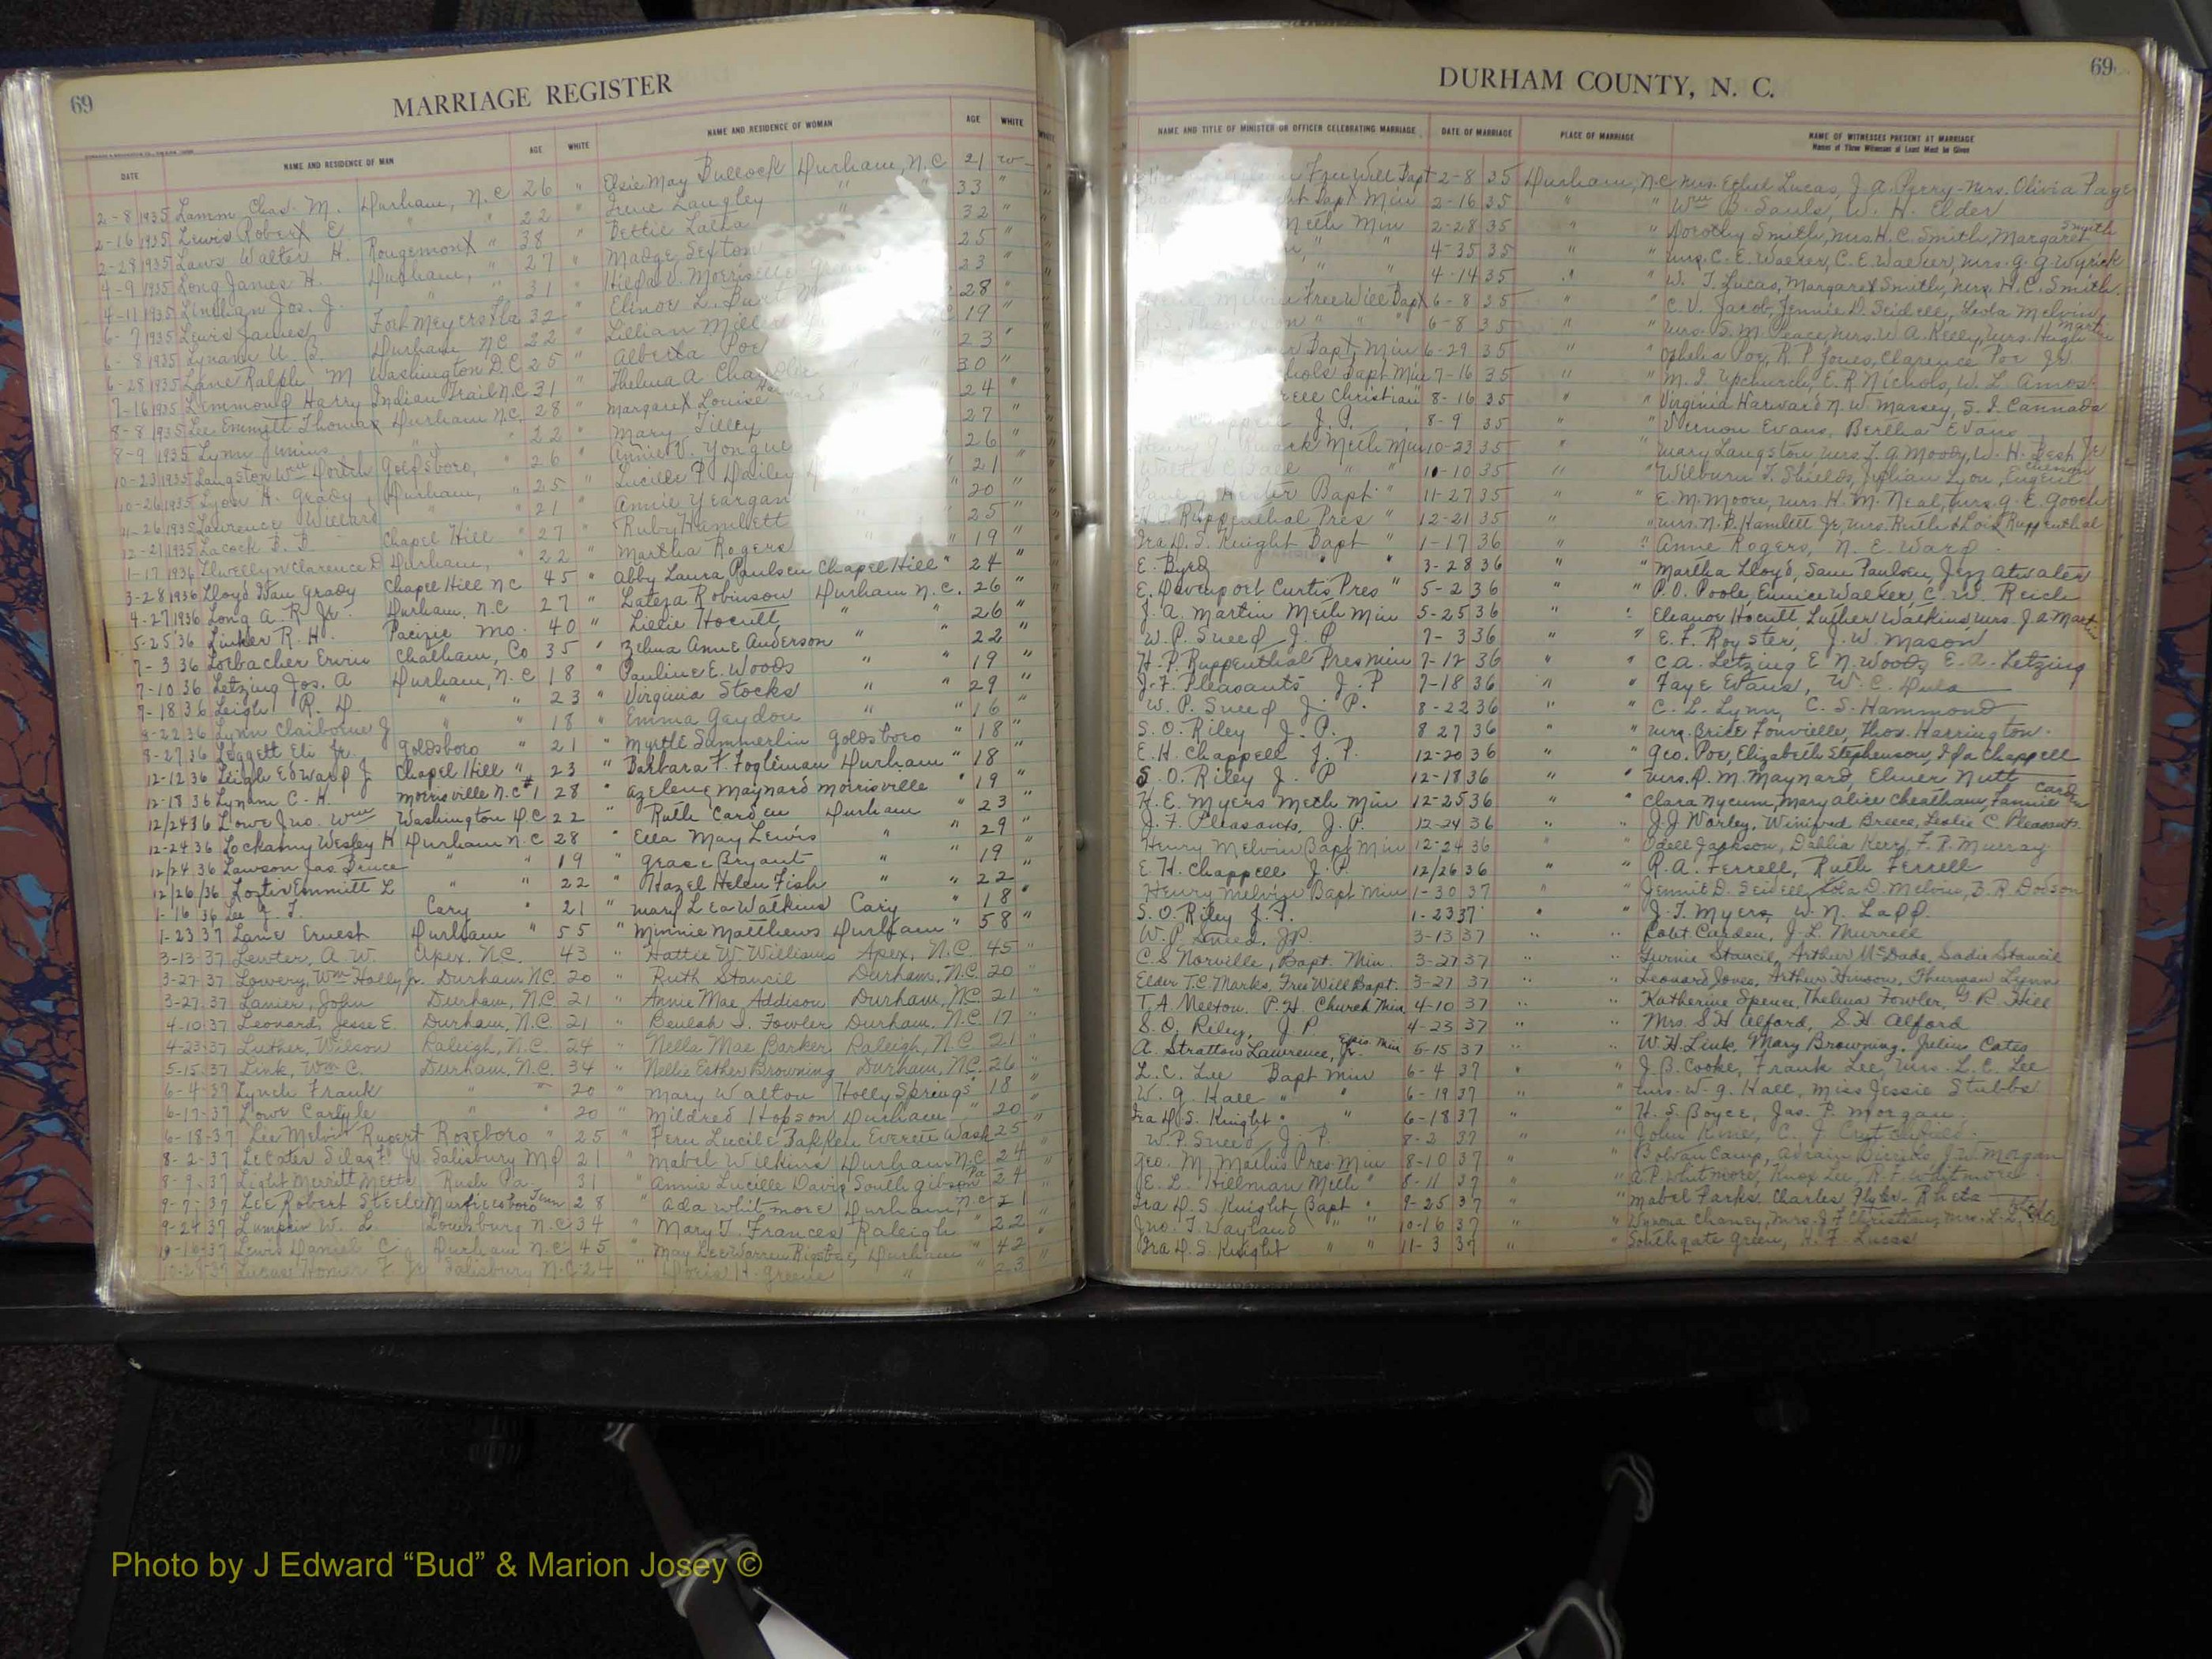 69
MARRIAGE REGISTER
DATE NAME AND RESIDENCE OF MAN AGE WHITE NAME AND RESIDENCE OF WOMAN AGE WHITE
2-8 1935 Lamm Chas. M. Durham, N.C 26 " Elsie May Bullock Durham, N.C 21 w
2-16 1935 Lewis Robert E " " 22 " Irene Langley " " 33 "
2-28 1935 Laws Walter H. Rougemont " 38 " Bettie Latta 32 "
4-9 1935 Long James H. Durham, " 27 " Madge Sexton 25 "
4-11 1935 Jos. J. " 31 " Hilda V. 23 "
6-7 1935 Lewis James Fort Meyers Fla 32 " Elinor L. 28 "
6-8 1935 Lynam U. B. Durham NC 22 " Lillian 19 "
6-28 1935 Lane Ralph M Washington D.C 25 " Alberta Poe 23 "
7-16 1935 Lemmond Harry Indian Trail N.C 31 " Thelma A 30 "
8-8 1935 Lee Emmett Thomas Durham N.C. 28 " Margaret Louise 24 "
8-9 1935 Lynn Junius " " 22 " Mary Tilley 27 "
10-23 1935 Langston Wm Dortch Goldsboro, " 26 " Annie V. Yongue 26 "
10-26 1935 Lyon H. Grady Durham, " 25 " Lucille P Dailey 21 "
11-26 1935 Lawrence Willard " " 21 " Annie Yeargan 20 "
12-21 1935 Lacock B. B Chapel Hill " 27 " Ruby Hamlett 25 "
1-17 1936 Llwellyn Clarence D Durham, " 22 " Martha Rogers " " 19 "
3-28 1936 Lloyd Dan Grady Chapel Hill NC 45 " Abby Laura Paulsen Chapel Hill " 24 "
4-27 1936 Long A. R. Jr. Durham, N.C 27 " Robinson Durham N.C. 26 "
5-25 36 Linker R. H. Pacific Mo. 40 " Lillie Hocutt " " 26 "
7-3 36 Lorbacher Erwin Chatham, Co 35 " Zelma Anne Anderson " 22 "
7-10 36 Letzing Jos. A Durham, N.C 18 " Pauline E. Woods " " 19 "
7-18 36 Leigh R. D. " " 23 " Virginia Stocks " " 29 "
8-22 36 Lynn Claiborne J " " 18 " Emma Gaydon " " 16 "
8-27 36 Leggett Eli Jr. Goldsboro " 21 " Myrtle Summerlin Goldsboro " 18 "
12-12 36 Leigh Edward J. Chapel Hill " 23 " Barbara F. Fogleman Durham " 18 "
12-18 36 Lynam C. H. Morrisville N.C #1 28 " Azelene Maynard Morrisville " 19 "
12/24 36 Lowe Jno. Wm Washington D.C 22 " Ruth Carden Durham " 23 "
12-24 36 Lockamy Wesley H Durham N.C 28 " Ella May Lewis " " 29 "
12/24 36 Lawson Jas Bruce " " 19 " Grace Bryant " " 19 "
12/26/36 Loftin Emmitt L " " 22 " Hazel Helen Fish " " 22 "
1-16 36 Lee G. T. Cary " 21 " Mary Lea Watkins Cary " 18 "
1-23 37 Lane Ernest Durham " 55 " Minnie Matthews Durham " 58 "
3-13-37 Lewter, A. W. Apex, N.C. 43 " Hattie W. Williams Apex, N.C. 45 "
3-27-37 Lowery, Wm Holly Jr. Durham N.C. 20 " Ruth Stancil Durham, N.C. 20 "
3-27-37 Lanier, John Durham, N.C. 21 " Annie Mae Addison Durham, N.C. 21 "
4-10-37 Leonard, Jesse E. Durham, N.C. 21 " Beulah I. Fowler Durham, N.C. 17 "
4-23-37 Luther, Wilson Raleigh, N.C. 24 " Nella Mae Barker Raleigh, N.C. 21 "
5-15-37 Link, Wm C. Durham, N.C. 34 " Nellie Esther Browning Durham, N.C. 26 "
6-4-37 Lynch Frank " " 20 " Mary Walton Holly Springs 18 "
6-17-37 Lowe Carlyle " " 20 " Mildred Hopson Durham " 20 "
6-18-37 Lee Melvin Rupert Roseboro " 25 " Fern Lucile Everett Wash 25 "
8-2-37 LeCates Silas F. Jr Salisbury Md 21 " Mabel Wilkins Durham N.C 24 "
8-9-37 Light Merritt Rush Pa. 31 " Annie Lucille Davis South Gibson Pa. 24 "
9-7-37 Lee Robert Steele Murfreesboro Tenn 28 " Ada Whitmore Durham, N.C 21 "
9-24-37 Lumpkin W. L. Louisburg N.C 34 " Mary T. Frances Raleigh " 22 "
10-16-37 Lewis Daniel C. Durham N.C 45 " May Lee Warren Rigsbee, Durham " 42 "
Lucas Homer F. Jr Salisbury N.C 24 " Doris H. Greene " " 23 "
DURHAM COUNTY, N. C.
69
NAME AND TITLE OF MINISTER OR OFFICER CELEBRATING MARRIAGE DATE OF MARRIAGE PLACE OF MARRIAGE NAME OF WITNESSES PRESENT AT MARRIAGE
Names of Three Witnesses at Least Must be Given
Free Will Bapt 2-8 35 Durham, N.C Mrs. Ethel Lucas, J. A. Perry-Mrs. Olivia Page
Bapt Min 2-16 35 " " Wm B. Sauls, W. H. Elder
Meth Min 2-28 35 " " Dorothy Smith, Mrs H. C. Smith, Margaret Smith
" " 4-35 35 " " Mrs. C. E. Walker, C. E. Walker, Mrs. G. G. Wyrick
" " 4-14 35 " " W. T. Lucas, Margaret Smith, Mrs. H. C. Smith.
Melvin Free Will Bapt 6-8 35 " " C. V. Jacob, Jennie D. Seidell, Leola Melvin
" " 6-8 35 " " Mrs. S. M. Peace, Mrs. W A. Kelly, Mrs. Hugh Martin
Bapt. Min 6-29 35 " " Ophelia Poe, R. P. Jones, Clarence Poe Jr
Bapt Min 7-16 35 " " M. I. Upchurch, E. R. Nichols, W. L. Amos
Christian 8-16 35 " " Virginia Harward N. W. Massey, S. J. Cannada
J. P. 8-9 35 " " Vernon Evans, Bertha Evans
Meth Min 10-23 35 " " Mary Langston, Mrs. L. G. Moody, W. H. Best Jr
" " 10-10 35 " " Wilburn T. Shields, Julian Lyon, Eugene
Hester Bapt " 11-27 35 " " E. M. Moore, Mrs. H. M. Neal, Mrs. G. E. Gooch
Ruppenthal Pres " 12-21 35 " " Mrs. N. B. Hamlett Jr, Mrs. Ruth & Lois Ruppenthal
Ira D. S. Knight Bapt " 1-17 36 " " Anne Rogers, N. E. Ward.
E. Byrd " " 3-28 36 " " Martha Lloyd, Sam Paulsen, Atwater
E. Davenport Curtis Pres " 5-2 36 " " P. O. Poole, Eunice Walker, C. W. Reich
J. A. Martin Meth Min 5-25 36 " " Eleanor Hocutt, Luther Watkins, Mrs. J. A. Martin
W. P. Sneed J. P 7-3 36 " " E. F. Royster, J. W. Mason
H. P. Ruppenthal Pres Min 7-12 36 " " C. A. Letzing E. N. Woods E. A. Letzing
J. F. Pleasants J. P 7-18 36 " " Faye Evans, W. C. Dula
W. P. Sneed J. P. 8-22 36 " " C. L. Lynn, C. S. Hammond
S. O. Riley J. P. 8 27 36 " " Mrs. Brice Fonville, Thos. Harrington.
E. H. Chappell J. P. 12-20 36 " " Geo. Poe, Elizabeth Stephenson, Ida Chappell
S. O. Riley J. P 12-18 36 " " Mrs. P. M. Maynard, Elmer Nutt
K. E. Myers Meth Min 12-25 36 " " Clara Nycum, Mary Alice Cheatham, Fannie Carden
J. F. Pleasants, J. P. 12-24 36 " " J. J. Worley, Winifred Breece, Leslie C. Pleasants.
Henry Melvin Bapt Min 12-24 36 " " Odell Jackson, Dahlia Kerr, F. R. Murray
E. H. Chappell J. P. 12/26 36 " " R. A. Ferrell, Ruth Ferrell
Henry Melvin Bapt Min 1-30 37 " " Jennie D. Seidell, Lola D. Melvin, B. R. Dodson
S. O. Riley J. P. 1-23 37 " " J. T. Myers, W. N. Ladd.
W. P. Sneed, JP. 3-13 37 " " Robt. Carden, J. L. Murrell
C. S. Norville, Bapt. Min. 3-27 37 " " Gurnie Stancil, Arthur McDade, Sadie Stancil
Elder T. C. Marks, Free Will Bapt. 3-27 37 " " Leonard Jones, Arthur Hinson, Thurman Lynn
T. A. Melton P. H. Church Min 4-10 37 " " Katherine Spence, Thelma Fowler, G. R. Hill
S. O. Riley, J. P 4-23 37 " " Mrs. S H Alford, S. H. Alford
A. Stratton Lawrence, Jr. Epis. Min 5-15 37 " " W. H. Link, Mary Browning, Julius Cates
L. C. Lee Bapt Min 6-4 37 " " J. B. Cooke, Frank Lee, Mrs. L. C. Lee
W. G. Hall " " 6-19 37 " " Mrs. W. G. Hall, Miss Jessie Stubbs
Ira D. S. Knight " " 6-18 37 " " H. S. Boyce, Jas. P. Morgan.
W. P. Sneed J. P. 8-2 37 " " John Kine, C. J. Crutchfield.
Geo. M. Mathis Pres. Min 8-10 37 " " Camp, J. W. Morgan
E. L. Hillman Meth " 8-11 37 " " A P Whitmore, Knox Lee, R. F. Whitmore.
Ira D. S Knight Bapt " 9-25 37 " " Mabel Parks. Charles Rheta
Jno. T. Wayland " " 10-16 37 " " Wynona Chaney, Mrs. J. F. Christian, Mrs. L. L.
Ira D. S. Knight " " 11-3 37 " " Southgate Green, H. F. Lucas
Photo by J Edward “Bud” & Marion Josey ©